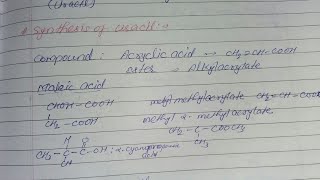 (Uracil)
* Synthesis of uracil :-
Compound : Acrylic acid → CH₂=CH-COOH
ester → Alkylacrylate
Malic acid
CHOH-COOH methyl methylacrylate CH₂=CH-COO
CH₂-COOH methyl α-methylacrylate
H O CH₂-C-COOCH₃
CH₃-C-C-OH : α-cyanopropionic acid CH₃